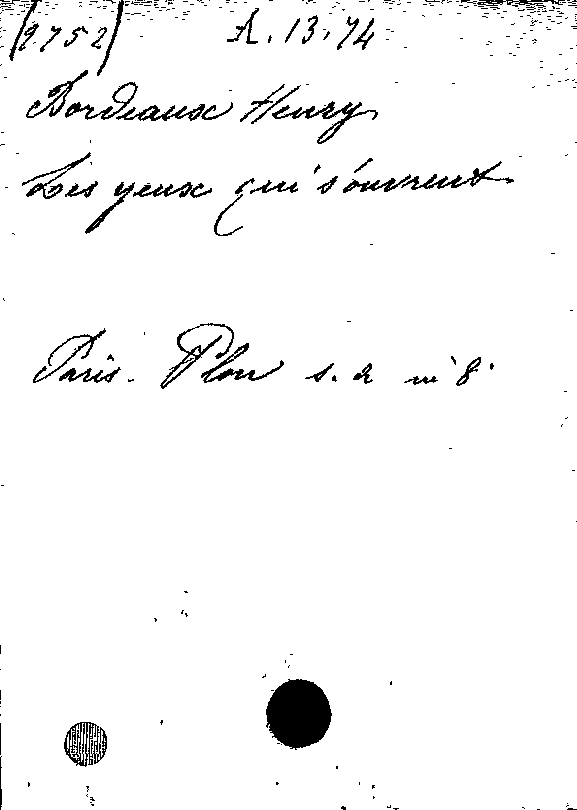 (9752) A. 13. 74
Bordeaux Henry
Les yeux qui s'ouvrent
Paris. Plon s. d in 8°